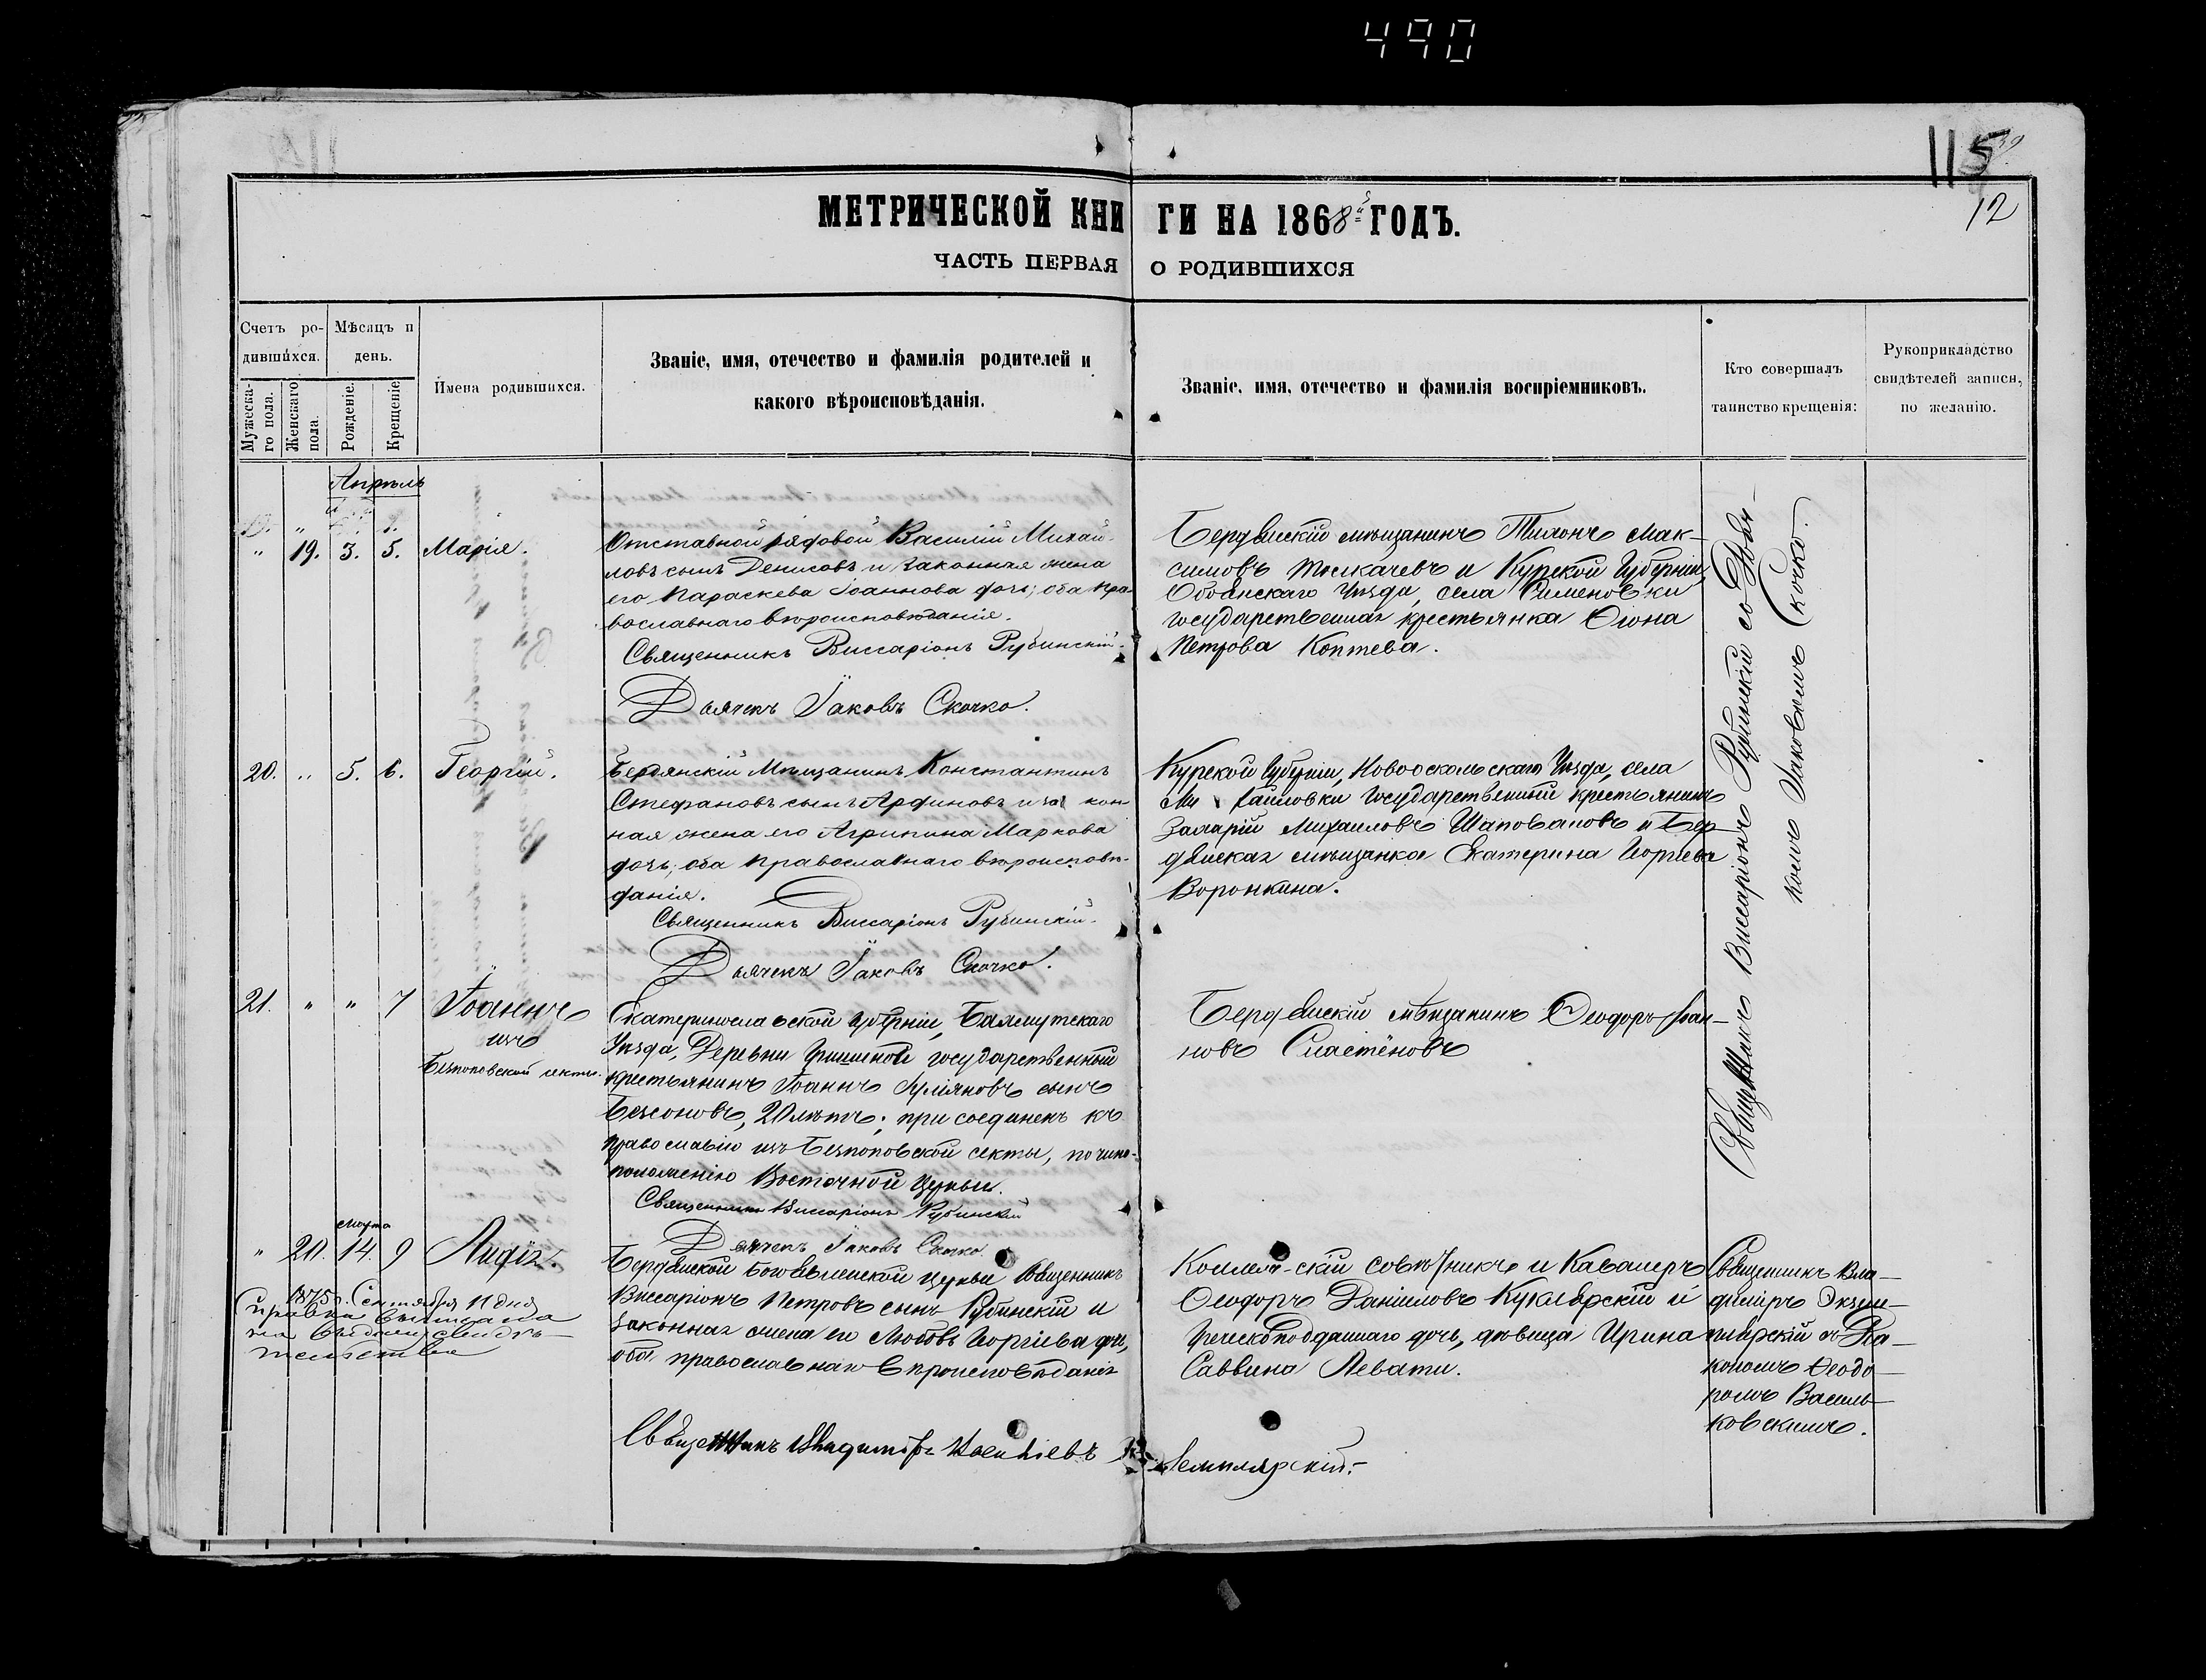 490
115
12
МЕТРИЧЕСКОЙ КНИ ГИ НА 1868й ГОДЪ.
ЧАСТЬ ПЕРВАЯ О РОДИВШИХСЯ
Счетъ ро-
дившихся.
Мужеска-
го пола.
Женскаго
пола.
Мѣсяцъ и
день.
Рожденіе.
Крещеніе
Имена родившихся.
Званіе, имя, отчество и фамилія родителей и
какого вѣроисповѣданія.
Званіе, имя, отчество и фамилія воспріемниковъ.
Кто совершалъ
таинство крещенія:
Рукоприкладство
свидѣтелей записи,
по желанію.
Апрѣль
" 19. 3. 5. Марія.
Отставной рядовой Василій Михай-
ловъ сынъ Денисовъ и законная жена
его Параскева Іоаннова дочь; оба пра-
вославнаго вѣроисповѣданія.
Священникъ Виссаріонъ Рубинскій.
Дьячекъ Іаковъ Скочко.
Бердянскій мѣщанинъ Тихонъ Мак-
симовъ Толкачевъ и Курской Губерніи,
Обоянскаго Уѣзда, села
государственная крестьянка
Петрова Коптева.
Священникъ Виссаріонъ Рубинскій со Дьяч-
комъ Іаковомъ Скочко.
20. " 5. 6. Георгій.
Бердянскій Мѣщанинъ Константинъ
Стефановъ сынъ Арфиновъ и за кон-
ная жена его Агрипина Маркова
дочь; оба православнаго вѣроисповѣ-
данія.
Священникъ Виссаріонъ Рубинскій.
Дьячекъ Іаковъ Скочко.
Курской Губерніи, Новооскольскаго Уѣзда, села
Ми хайловки Государственный крестьянинъ
Захарій Михаиловъ Шаповаловъ и Бер-
дянская мѣщанка Екатерина Георгіева
Воронкина.
21. " " 7 Іоаннъ
изъ
Безпоповской секты.
Екатеринославской Губерніи, Бахмутскаго
Уѣзда, Деревни государственный
крестьянинъ Іоаннъ сынъ
Безсоновъ, 20 лѣтъ; присоединенъ къ
православію изъ Безпоповской секты, по чино-
положенію Восточной Церкви.
Священникъ Виссаріонъ Рубинскій
Дьячекъ Іаковъ Скочко.
Бердянскій мѣщанинъ Ѳеодоръ Іоан-
новъ Сластёновъ
марта
" 20. 14. 9 Лидія.
1875 г. Сентября 11 дня
справка выписана
на
Бердянской Боговленской церкви Священникъ
Виссаріонъ Петровъ сынъ Рубинскій и
законная жена его Любовь Георгіева дч,
оба православнаго вѣроисповѣданія
Священникъ Владиміръ Экземплярскій.
Коллежскій совѣтникъ и Кавалеръ
Ѳеодоръ Даніиловъ Куклярскій и
Греческоподданнаго дочь, дѣвица Ирина
Саввина Левати.
Священникъ Вла-
диміръ Экзем-
плярскій съ Діа-
кономъ Ѳеодо-
ромъ Василь-
ковскимъ.